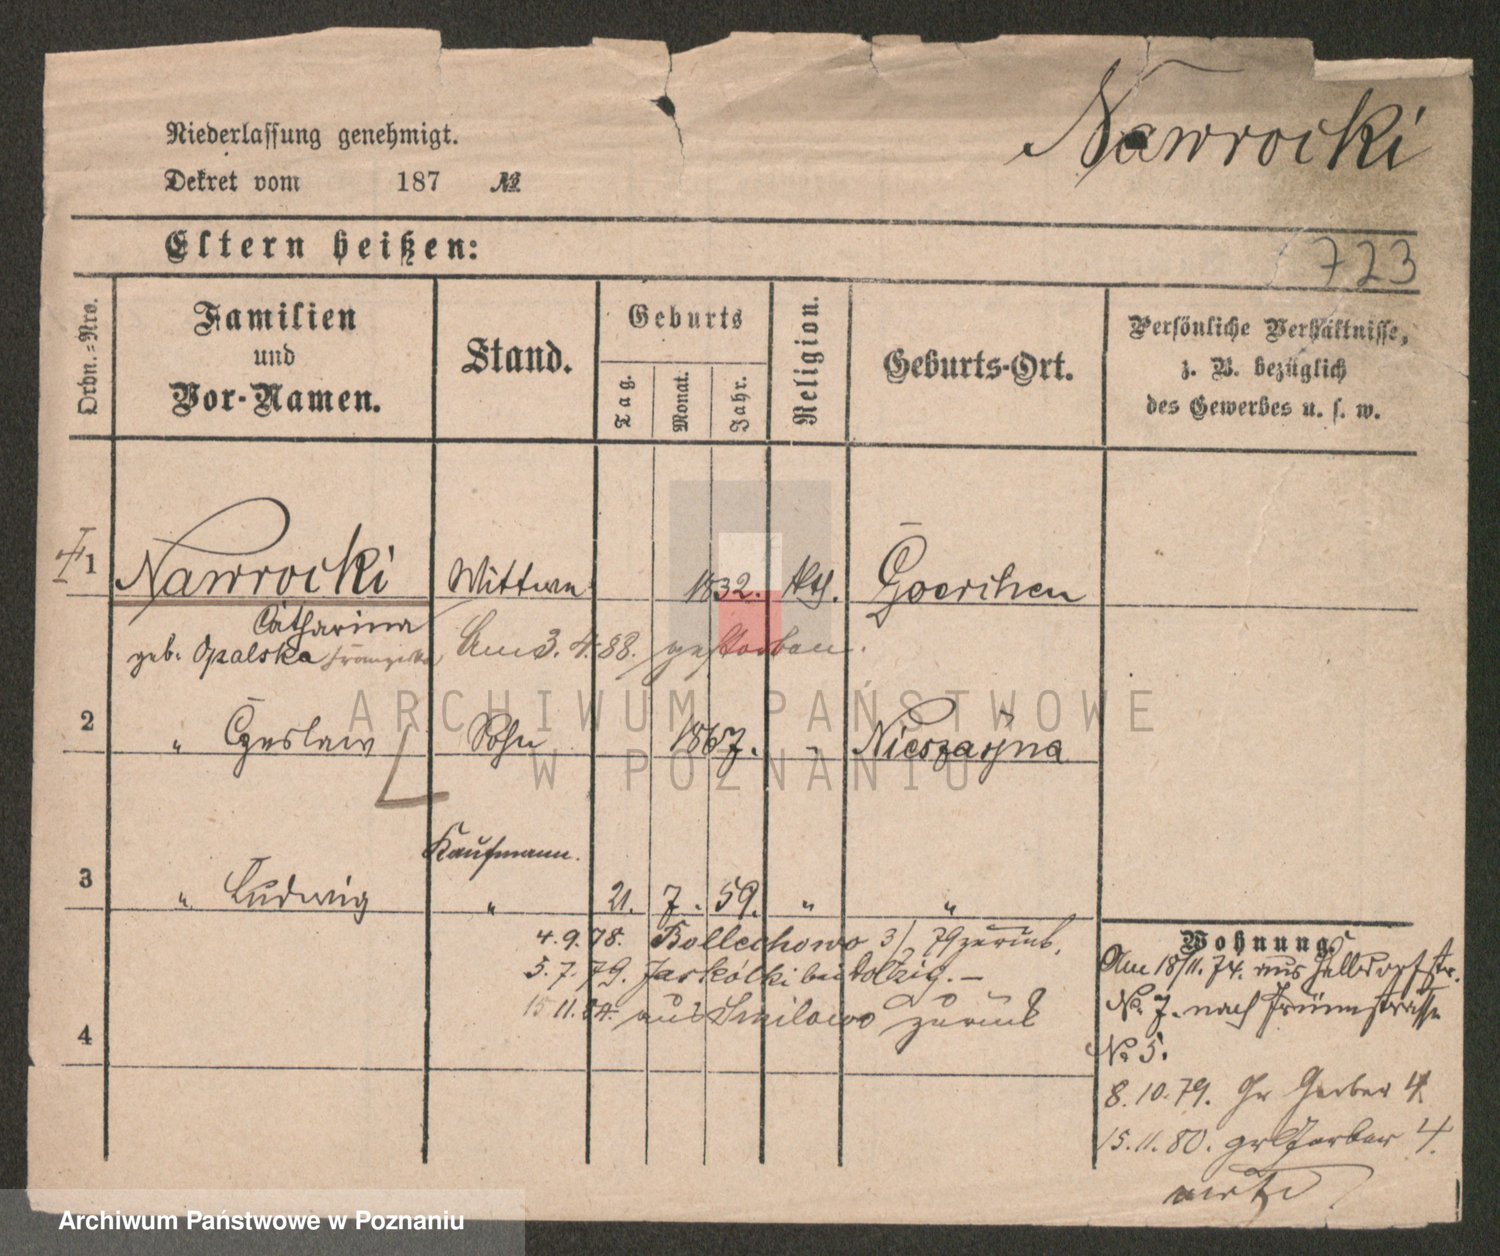 Nawrocki
Niederlassung genehmigt.
Dekret vom 187 №
Eltern heißen:
723
Ordn.-Nro.
Familien
und
Vor-Namen.
Stand.
Geburts
Tag.
Monat.
Jahr.
Religion.
Geburts-Ort.
Persönliche Verhältnisse,
z. B. bezüglich
des Gewerbes u. s. w.
1 Nawrocki Wittwe 1832. kth. Goerchen
Catharina
geb. Opalska Franziska Am 3. 4. 88. gestorben.
2 " Czeslaw Sohn 1867. "
Kaufmann.
3 " Ludwig " 21. 7. 59. " "
4.9.78. Bollechowo 3/ 79 zurück.
5.7.79. Jaskólki bei Dolzig. —
15 11. 84. aus Smilowo zurück
4
Wohnung.
Am 18/11. 74. aus
No. 7. nach
No 5.
8.10.79. Gr Gerber 4.
15.11.80. gr Gerber 4.
ARCHIWUM PAŃSTWOWE
W POZNANIU
Archiwum Państwowe w Poznaniu